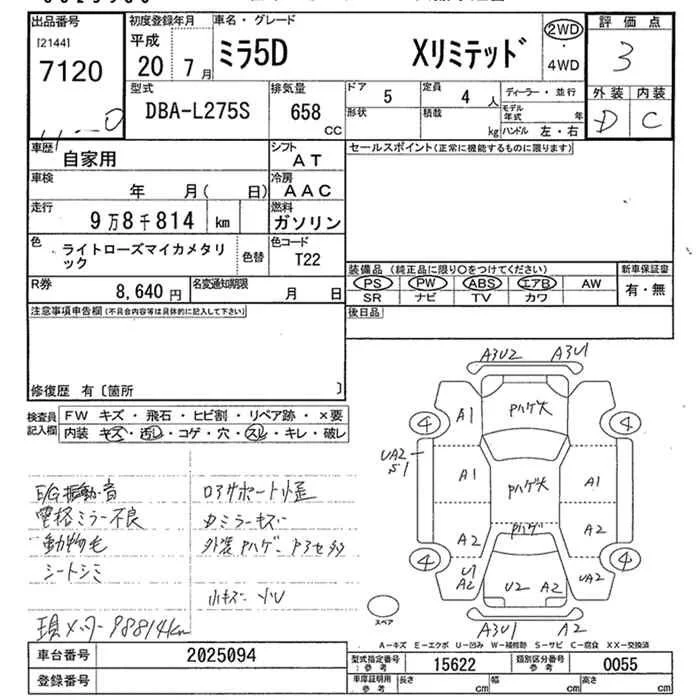 出品番号
[2144]
7120
初度登録年月
平成
20 7月
車名・グレード
ミラ5D Xリミテッド
2WD
・
4WD
評価点
3
型式
DBA-L275S
排気量
658
CC
ドア 5
定員 4 人
形状
積載 kg
ディーラー・並行
モデル年式 年
ハンドル 左・右
外装 内装
D C
車歴
自家用
シフト
AT
セールスポイント(正常に機能するものに限ります)
車検
年 月( 日)
冷房
AAC
走行
9万8千814 km
燃料
ガソリン
色
ライトローズマイカメタリック
色替
色コード
T22
装備品 (純正品に限り○をつけてください)
新車保証書
PS PW ABS エアB AW
有・無
SR ナビ TV カワ
R券
8,640 円
名変通知期限
月 日
後日品
注意事項申告欄(不具合内容等は具体的に記入して下さい)
修復歴 有〔箇所 〕
検査員記入欄
FW キズ・飛石・ヒビ割・リペア跡・×要
内装 キズ・汚し・コゲ・穴・スレ・キレ・破レ
E/G振動・音
電格ミラー不良
動物毛
シートシミ
ロアサポート小歪
Dミラーキズ
外装Pハゲ・
小キズ・小U
現メーター98814km
A3U2 A3U1
④ A1 Pハゲ大 ④
UA2
S1
A1 Pハゲ大 A1
A2 Pハゲ A2
④ U1
A2 U2 A2 UA2 ④
スペア
A3U1 A2
A-キズ E-エクボ U-凹み W-補修跡 S-サビ C-腐食 XX-交換済
車台番号
2025094
型式指定番号
参考
15622
類別区分番号
参考
0055
登録番号
車庫証明用
参考
長さ cm 幅 cm 高さ cm